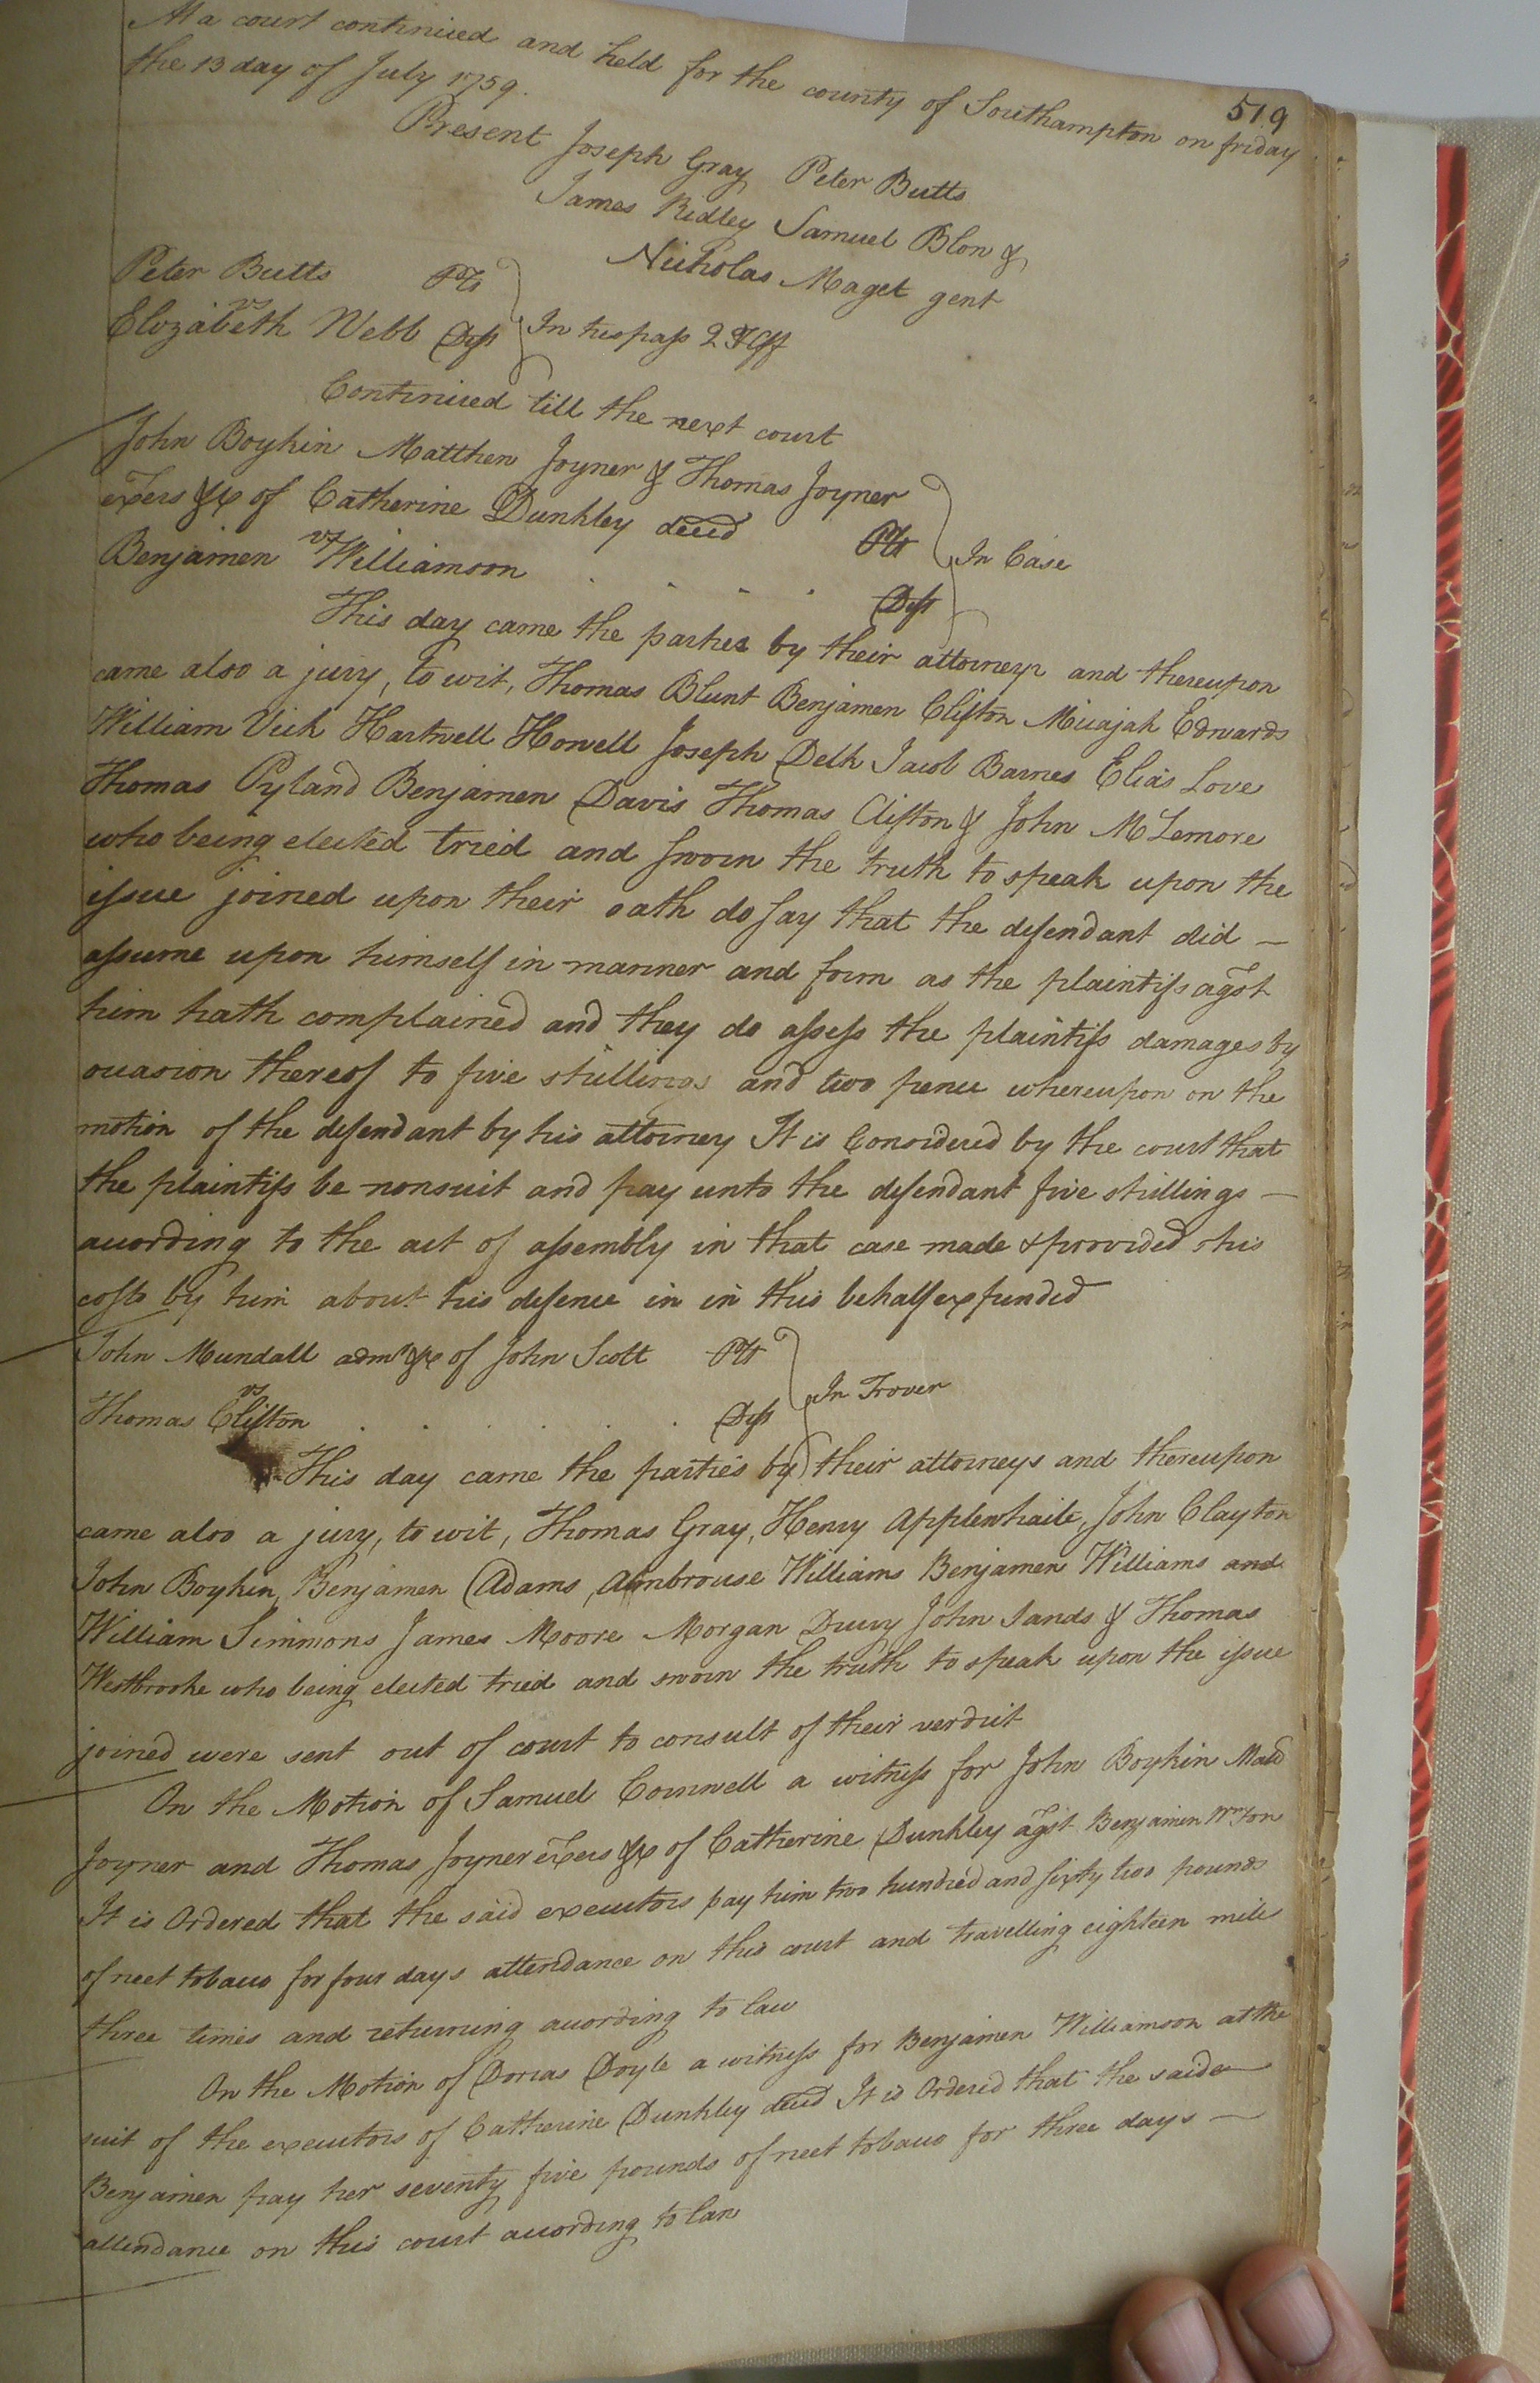 519
At a court continued and held for the county of Southampton on friday
the 13 day of July 1759.
Present Joseph Gray Peter Butts
James Ridley Samuel Blon &
Nicholas Maget gent
Peter Butts Plt
vs
Elozabeth Webb Deft
In trespass
Continued till the next court
John Boykin Matthew Joyner & Thomas Joyner
exers &c of Catherine Dunkley deced Plt
vs
Benjamen Williamson . . . . Deft
In Case
This day came the parties by their attorneys and thereupon
came also a jury, to wit, Thomas Blunt Benjamen Clifton Micajah Edwards
William Vick Hartwell Howell Joseph Delk Jacob Barnes Elias Love
Thomas Pyland Benjamen Davis Thomas Clifton & John McLemore
who being elected tried and sworn the truth to speak upon the
issue joined upon their oath do say that the defendant did —
assume upon himself in manner and form as the plaintifs agst
him hath complained and they do assess the plaintifs damages by
occasion thereof to five shillings and two pence whereupon on the
motion of the defendant by his attorney It is Considered by the court that
the plaintifs be nonsuit and pay unto the defendant five shillings —
according to the act of assembly in that case made & provided & his
costs by him about his defence in in this behalf expended
John Mundall admr &c of John Scott Plt
vs
Thomas Clifton . . . . . . Deft
In Trover
This day came the parties by their attorneys and thereupon
came also a jury, to wit, Thomas Gray, Henry Applewhaite, John Clayton
John Boykin, Benjamen Adams, Ambrouse Williams Benjamen Williams and
William Simmons James Moore Morgan Drury John Sands & Thomas
Westbrooke who being elected tried and sworn the truth to speak upon the issue
joined were sent out of court to consult of their verdict
On the Motion of Samuel Cornwell a witness for John Boykin Matw
Joyner and Thomas Joyner exers &c of Catherine Dunkley agst Benjamen Wmson
It is Ordered that the said executors pay him two hundred and sixty two pounds
of neet tobacco for four days attendance on this court and travelling eighteen miles
three times and returning according to law
On the Motion of Dorcas Doyle a witness for Benjamen Williamson at the
suit of the executors of Catherine Dunkley deced It is Ordered that the said
Benjamen pay her seventy five pounds of neet tobacco for three days —
attendance on this court according to law